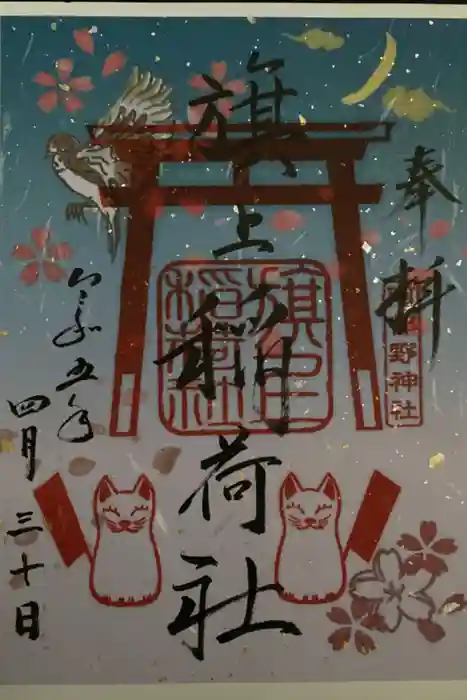 奉
料
旗上稲荷社
令和五年
四月三十日
旗上
稲荷社
野神社